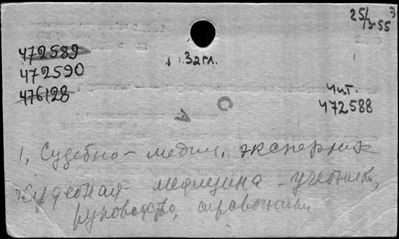 25/3-55
472589
472590
476128
32гл.
Чит.
472588
1, Судебно-медиц. экспертиза
2, Судебная медицина - учебники,
руководства, справочники